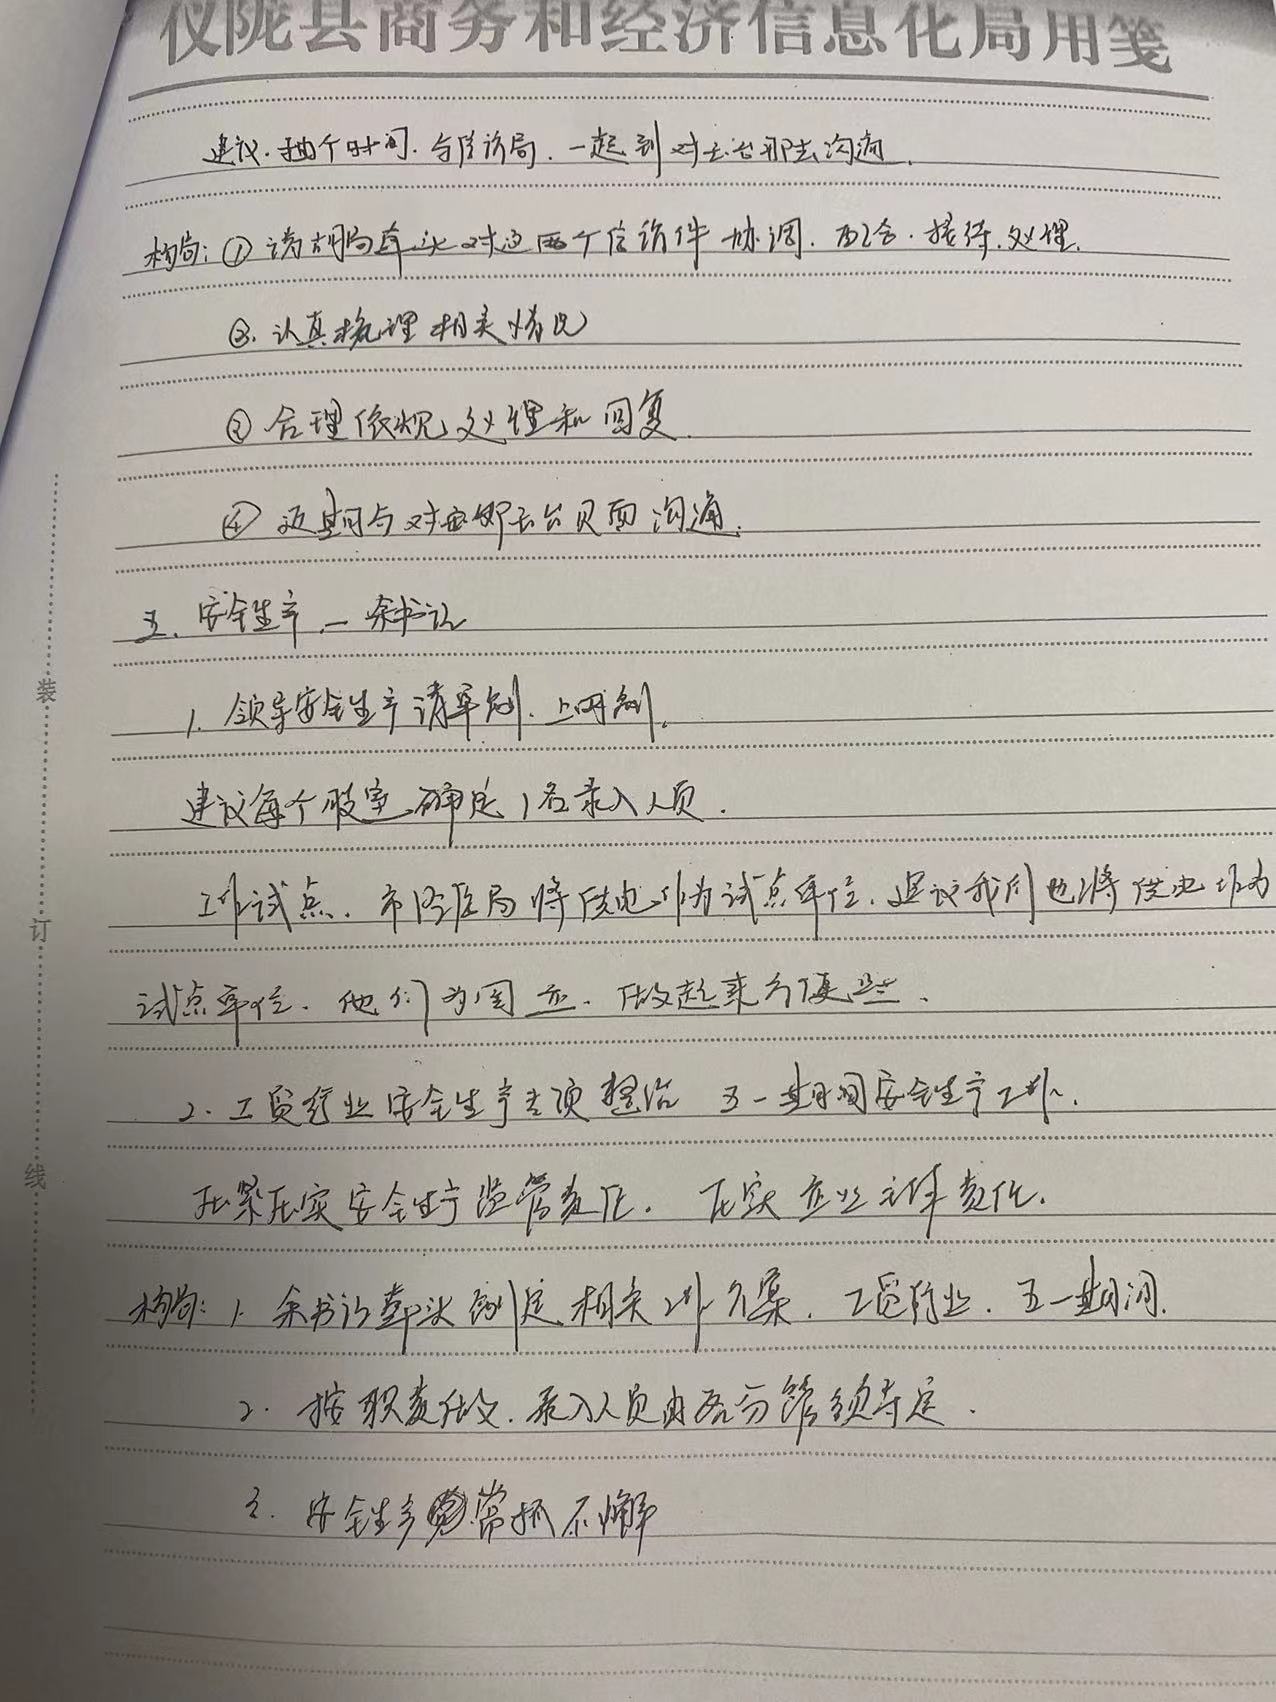 仪陇县商务和经济信息化局用笺
建议.抽个时间.与信访局.一起到对云台那去沟通.
构局:①请胡局牵头对这两个信访件协调.配合.接待.处理.
②.认真梳理相关情况
③合理依规处理和回复.
④近期与对云台见面沟通.
五.安全生产—余书记
1.领导安全生产清单制.上网制.
建议每个股室确定1名录入人员.
工作试点.市经信局将供电作为试点单位.建议我们也将供电作为
试点单位.他们为国企.做起来方便些.
2.工贸行业安全生产专项整治 五一期间安全生产工作.
压紧压实安全生产监管责任. 压实企业主体责任.
构局:1.余书记牵头制定相关工作方案.工贸行业.五一期间.
2.按职责做.录入人员由各分管领导定.
3.安全生产常抓不懈
装
订
线